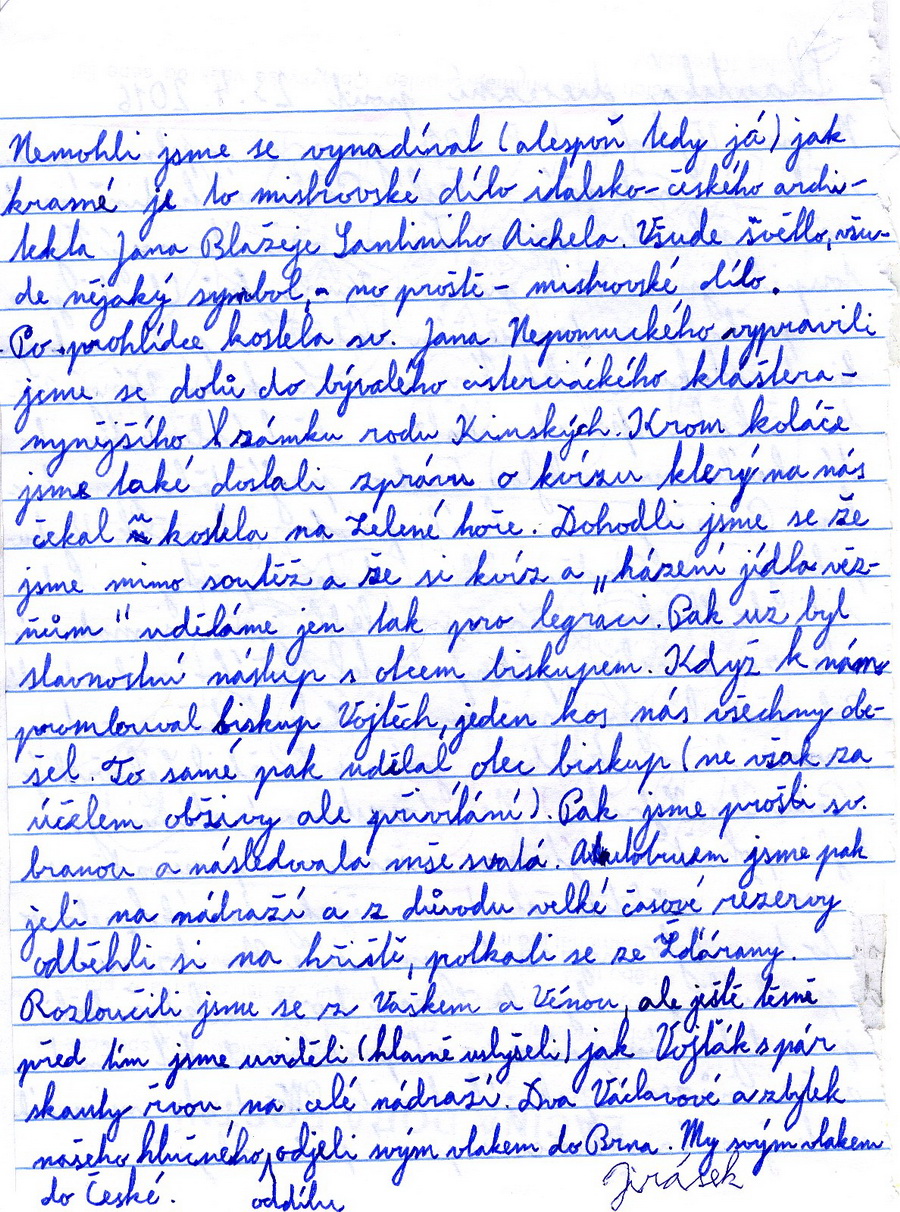 Nemohli jsme se vynadíval (alespoň tedy já) jak
krasné je to mistrovské dílo italsko-českého archi-
tekta Jana Blažeje Santiniho Aichela. Všude světlo, všu-
de nějaký symbol, - no prostě - mistrovské dílo.
Po prohlídce kostela sv. Jana Nepomuckého vypravili
jsme se dolů do bývalého cisterciáckého kláštera -
nynějšího zámku rodu Kinských. Krom koláče
jsme také dostali zprávu o kvízu který na nás
čekal u kostela na Zelené hoře. Dohodli jsme se že
jsme mimo soutěž a že si kvíz a „házení jídla věz-
ňům" uděláme jen tak pro legraci. Pak už byl
slavnostní nástup s otcem biskupem. Když k nám
promlouval biskup Vojtěch, jeden kos nás všechny obe-
šel. To samé pak udělal otec biskup (ne však za
účelem obživy ale přivítání). Pak jsme prošli sv.
branou a následovala mše svatá. Autobusem jsme pak
jeli na nádraží a z důvodu velké časové rezervy
odběhli si na hřiště, potkali se ze Žďárany.
Rozloučili jsme se z Vaškem a Vénou, ale ještě těsně
před tím jsme uviděli (hlavně uslyšeli) jak Vojťák s pár
skauty řvou na celé nádraží. Dva Václavové a zbytek
našeho hlučného oddílu odjeli svým vlakem do Brna. My svým vlakem
do České.
Jirásek